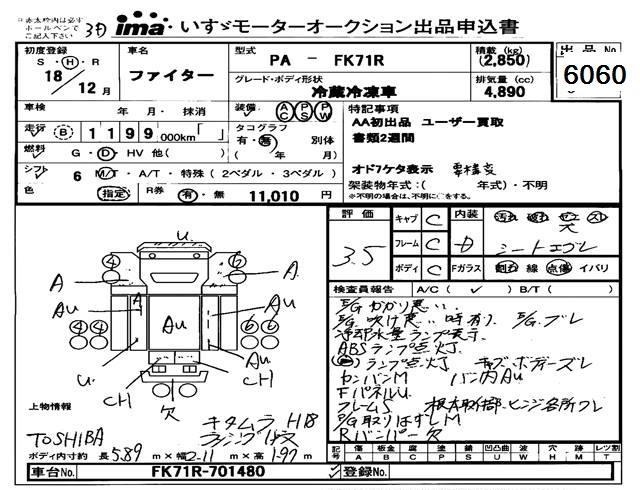 ima いすゞモーターオークション出品申込書
初度登録 S・H・R 18/12月
車名 ファイター
型式 PA － FK71R
グレード・ボディ形状 冷蔵冷凍車
積載(kg) (2,850)
排気量(cc) 4,890
出品No. 6060
車検 年 月・抹消
装備 AC PS PW
走行 B 1199 000km「 」
タコグラフ 有・無 別体 ( 年 月)
燃料 G・D・HV 他( )
シフト 6 M/T・A/T・特殊(2ペダル・3ペダル)
色 指定 R券 有・無 11,010 円
特記事項
AA初出品 ユーザー買取
書類2週間
オドケタ表示
架装物年式:( 年式)・不明
※不明の場合は、不明に○をする。
評価 3.5
キャブ C 内装 D
フレーム C シートエグレ
ボディ C Fガラス 割れ 線 点傷 イバリ
検査員報告 A/C(✓) B/T( )
E/Gかかり悪い..
E/G吹け悪い 時有り. E/G.ブレ
冷却水量ランプ表示
ABSランプ点灯.
ランプ点灯 キャブ、ボディーズレ
カンバンM バン内AU
FパネルU.
フレームS 根本取付部.ヒンジ各所ワレ
P/G取りはずしM
Rバンパー欠
U.
4 6
A A.
AU A AU
AU
4 4 6 6
U. AU
CH CH
欠
上物情報
TOSHIBA
キタムラ H18
ボディ内寸 約 長 5.89 m×幅 2.11 m×高 1.97 m
記号 傷 A 板金 B 腐 C 塗 P サビ S 凹凸曲 U 波 W 穴 H 跡 X ミダレ M レツ割 T
車台No. FK71R-701480 登録No.